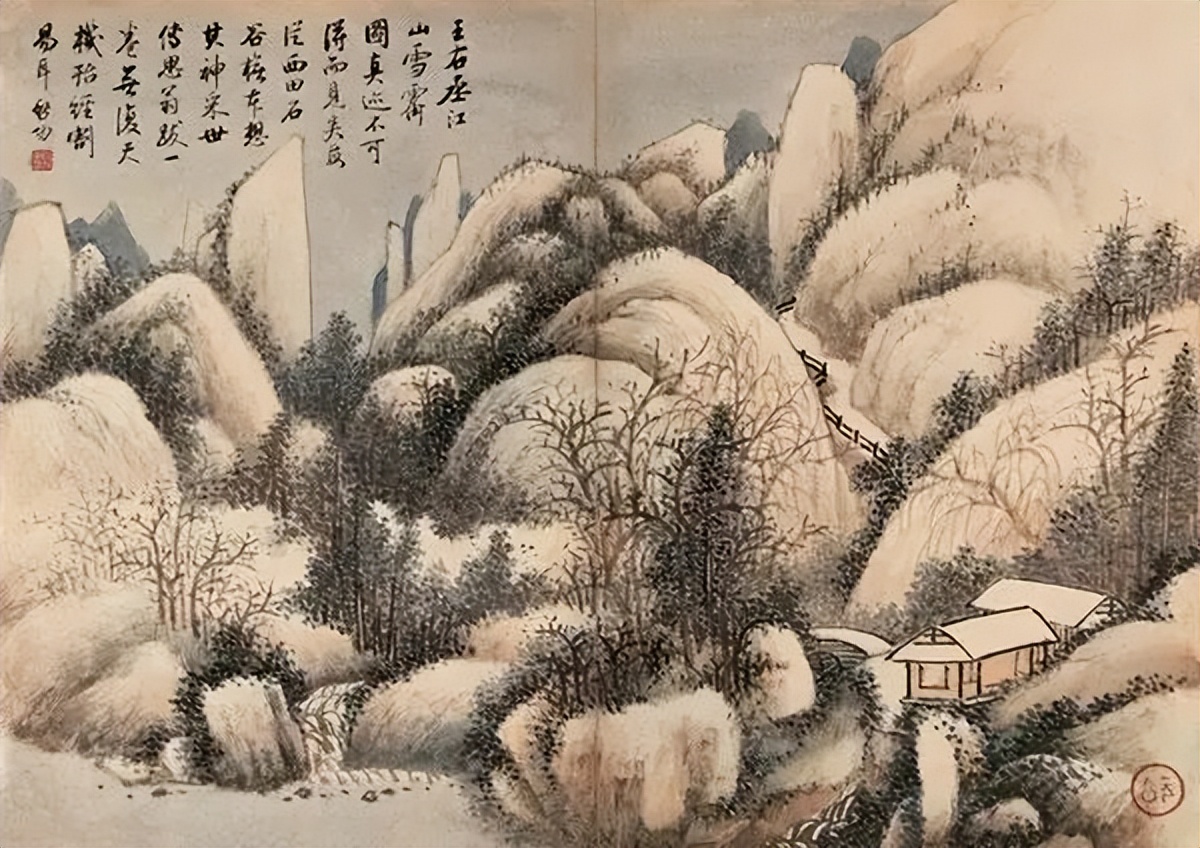 王右丞江
山雪霽
圖真迹不可
得而見矣
從西田石
谷橅本想
其神采世
傳思翁跋一
卷無復天
機殆經割
易耳 啟功